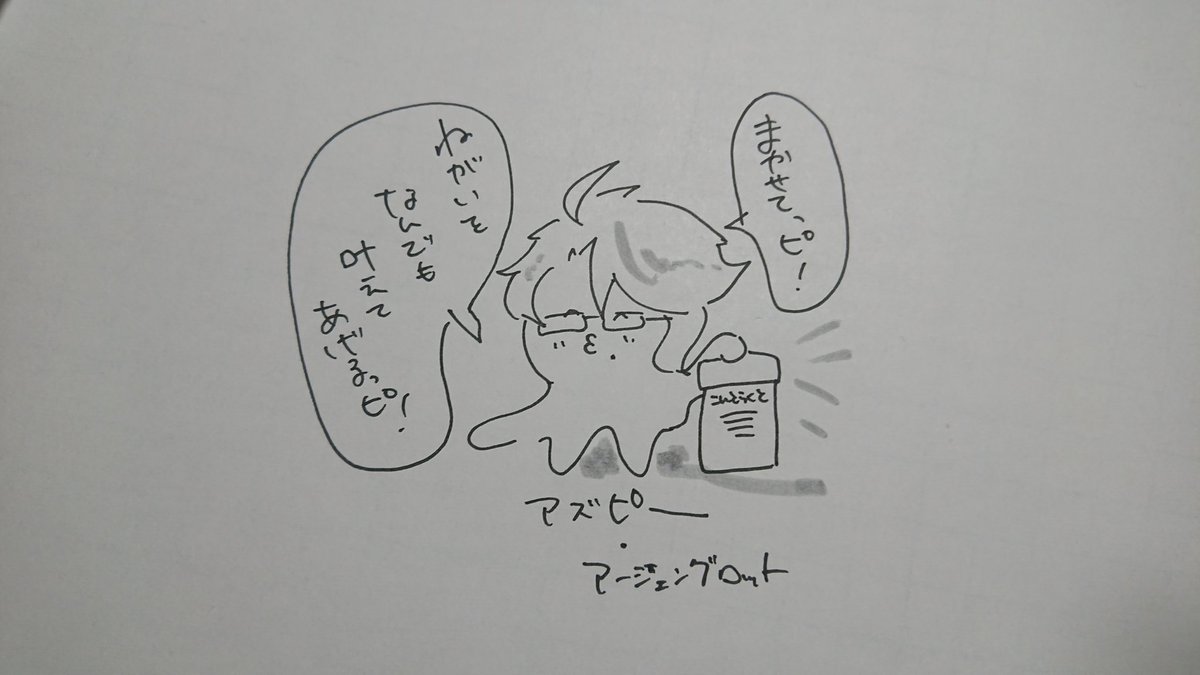 まかせて、ピ!
ねがいを
なんでも
叶えて
あげるっ
ピ!
こんとらくと
アズピー
・
アージェングロット